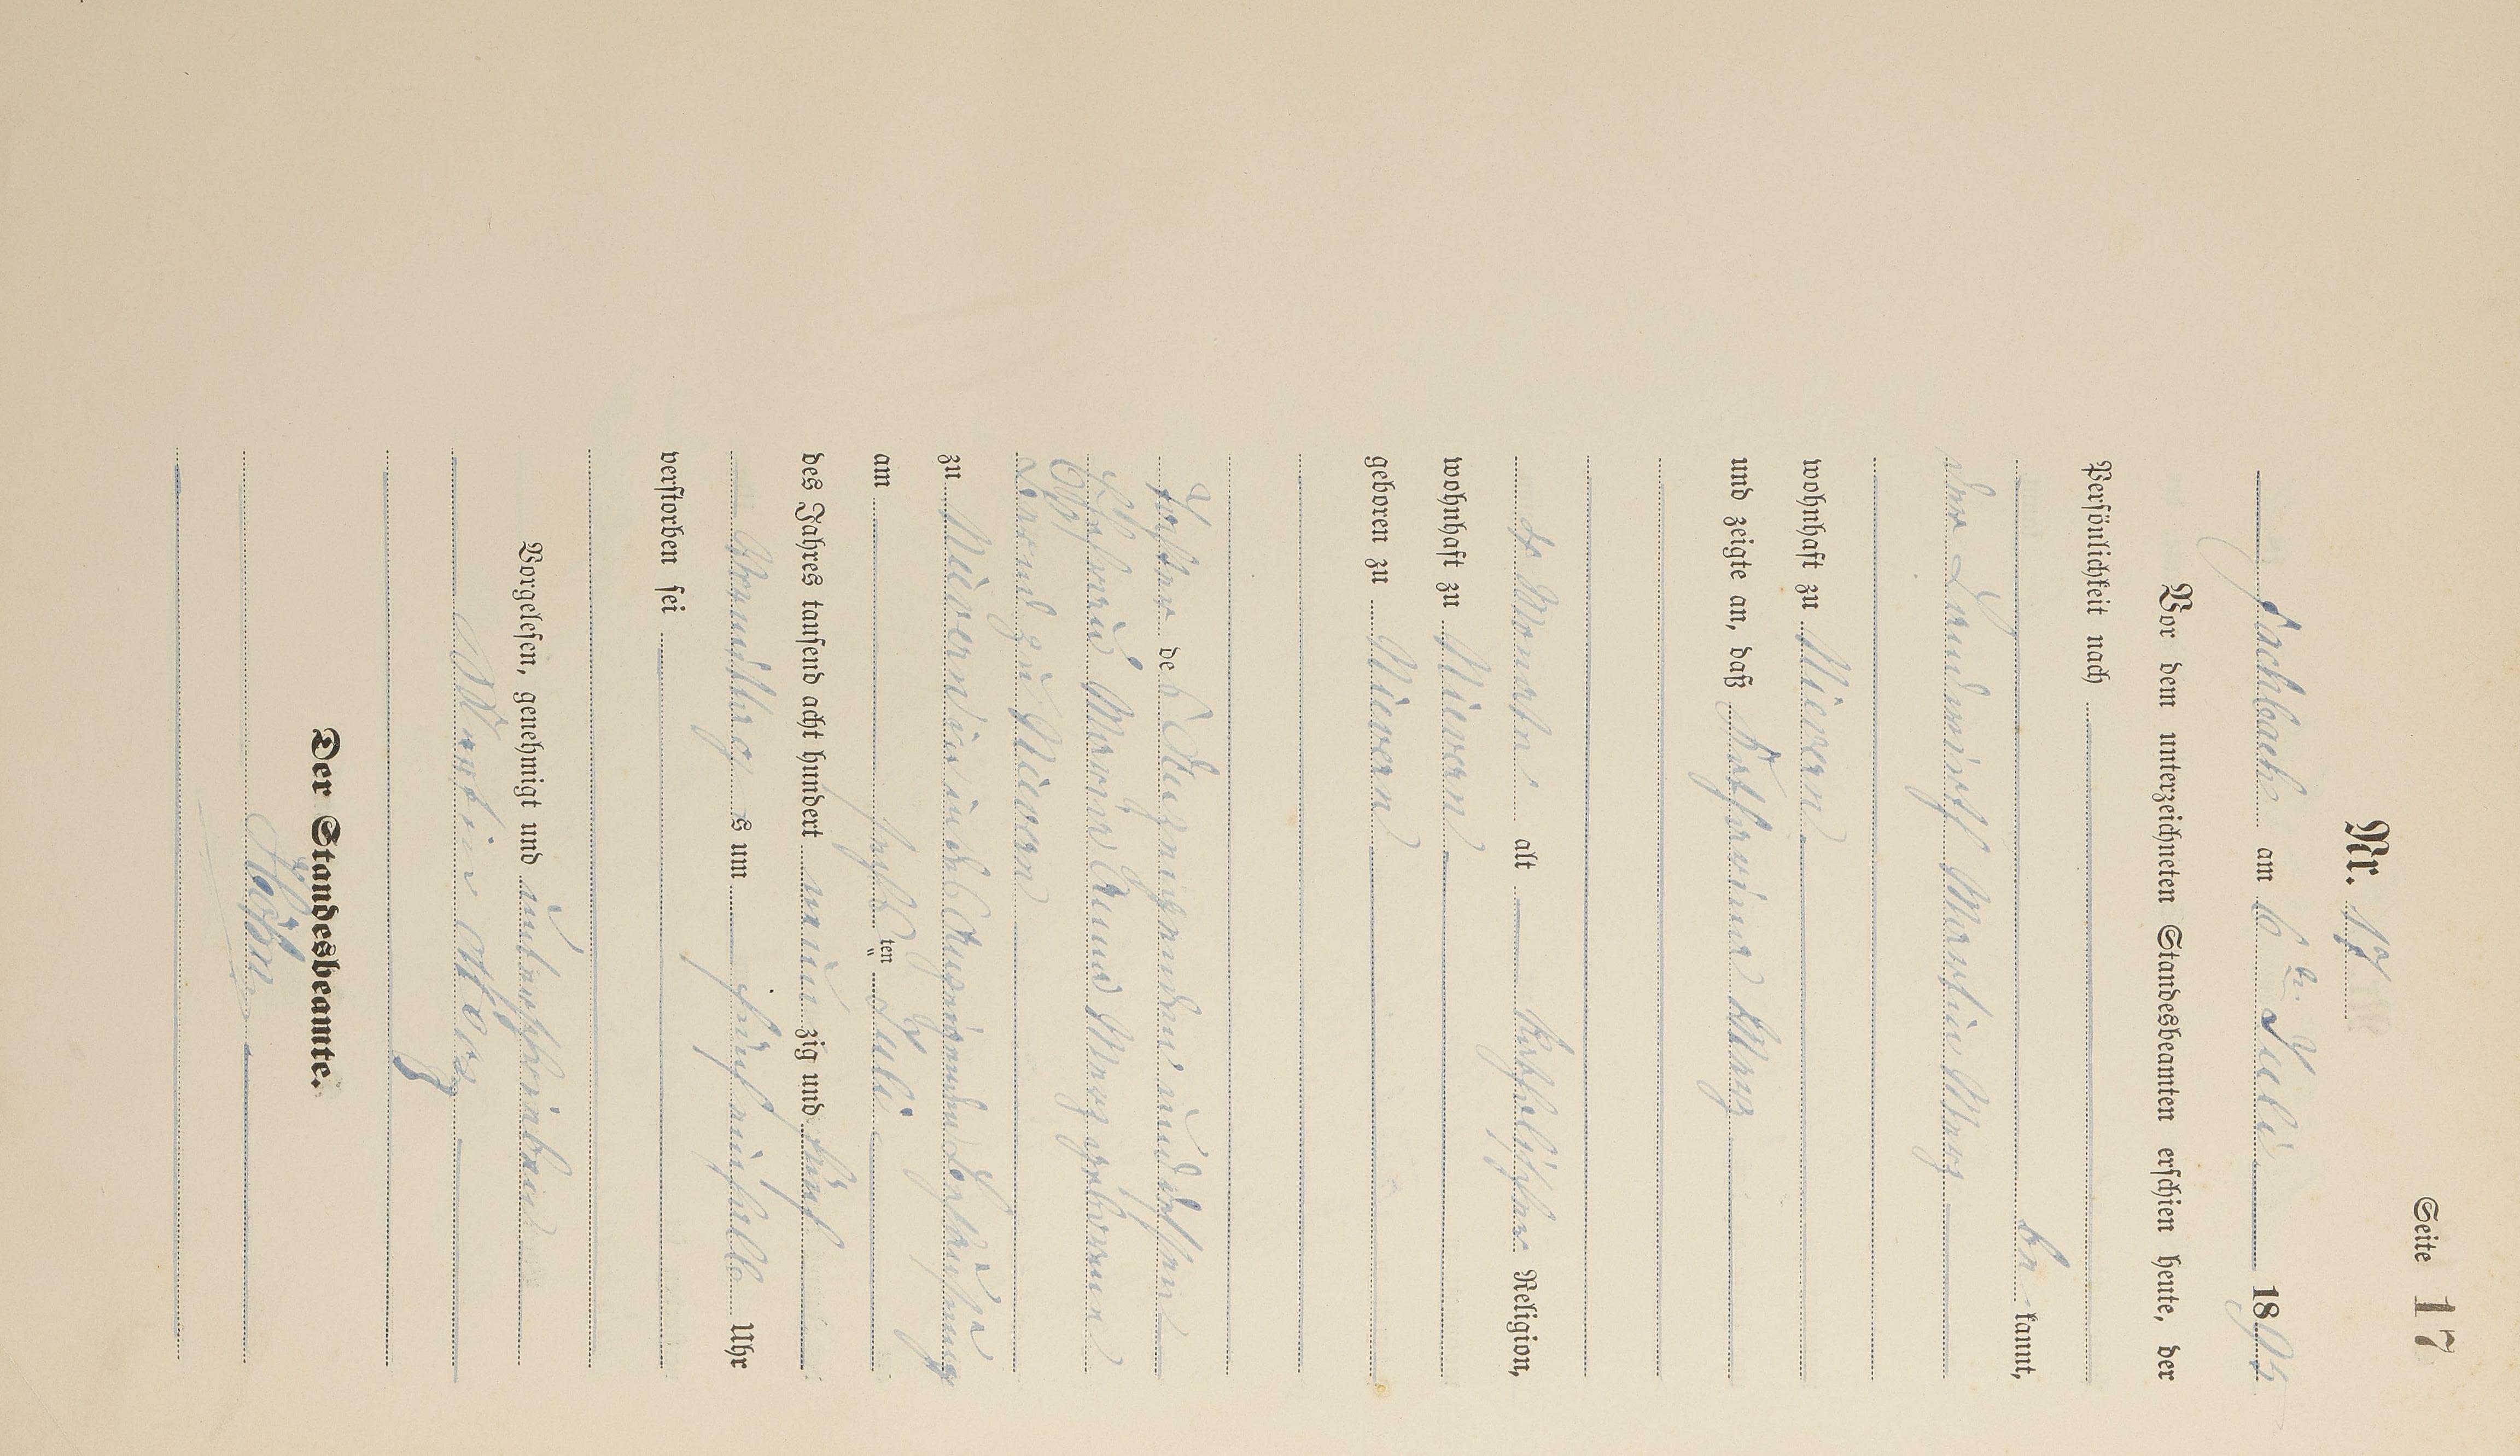 Seite 17
Nr. 17
Fachbach am 6ten Juli 1895
Vor dem unterzeichneten Standesbeamten erschien heute, der
Persönlichkeit nach
be kannt,
der Landwirth Martin Merz
wohnhaft zu Nievern
und zeigte an, daß Katharina Merz
Monate alt katholischer Religion,
wohnhaft zu Nievern
geboren zu Nievern
Tochter des Anzeigenden und dessen
Ehefrau Maria Anna Merz geborene
zu Nievern in des Anzeigenden Behausung
am sechsten Juli
des Jahres tausend acht hundert neun zig und fünf
Vormittags um fünfeinhalb Uhr
verstorben sei
Vorgelesen, genehmigt und unterschrieben
Martin Merz
Der Standesbeamte.